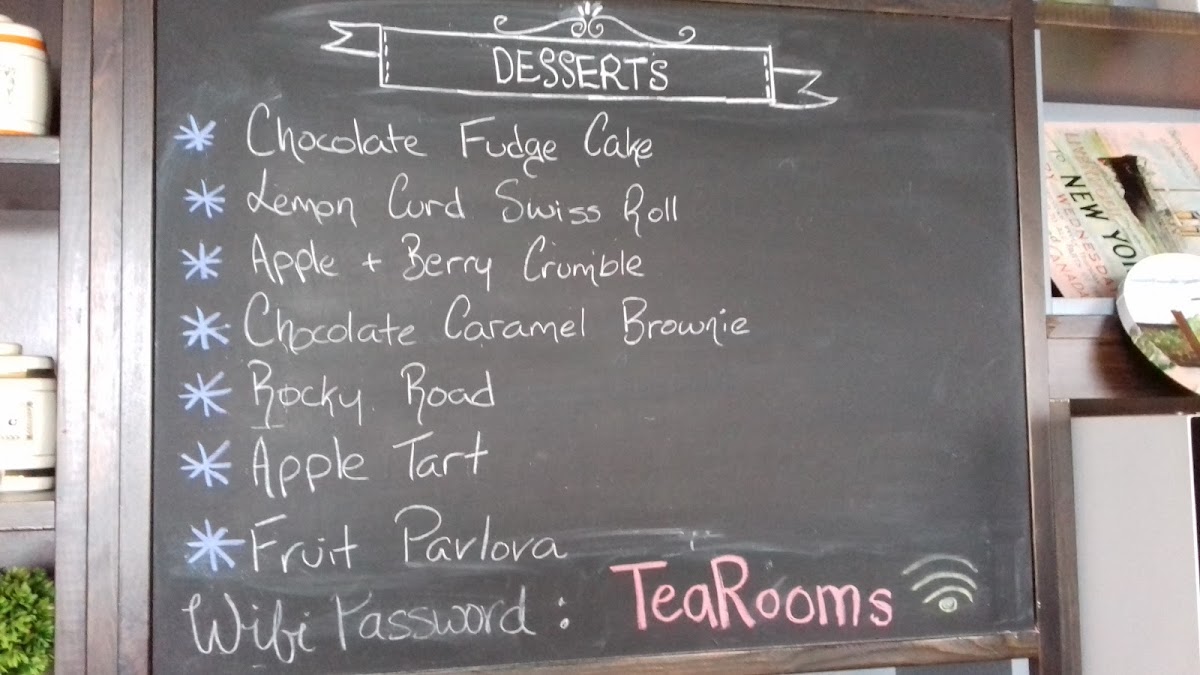 DESSERTS
Chocolate Fudge Cake
Lemon Curd Swiss Roll
Apple + Berry Crumble
Chocolate Caramel Brownie
Rocky Road
Apple Tart
Fruit Pavlova
Wifi Password : TeaRooms
NEW YO
WEDNESDAY